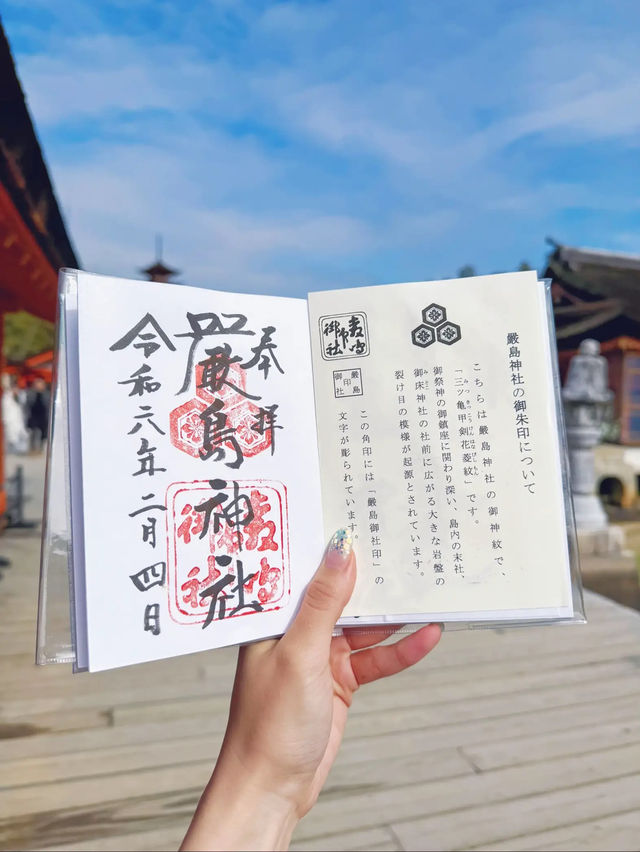 奉拝
嚴島神社
令和六年二月四日
嚴島神社の御朱印について
こちらは嚴島神社の御神紋で、
「三ツ亀甲剣花菱紋」です。
御祭神の御鎮座に関わり深い、島内の末社、
御床神社の社前に広がる大きな岩盤の
裂け目の模様が起源とされています。
嚴島
御印
社
この角印には「嚴島御社印」の
文字が彫られています。